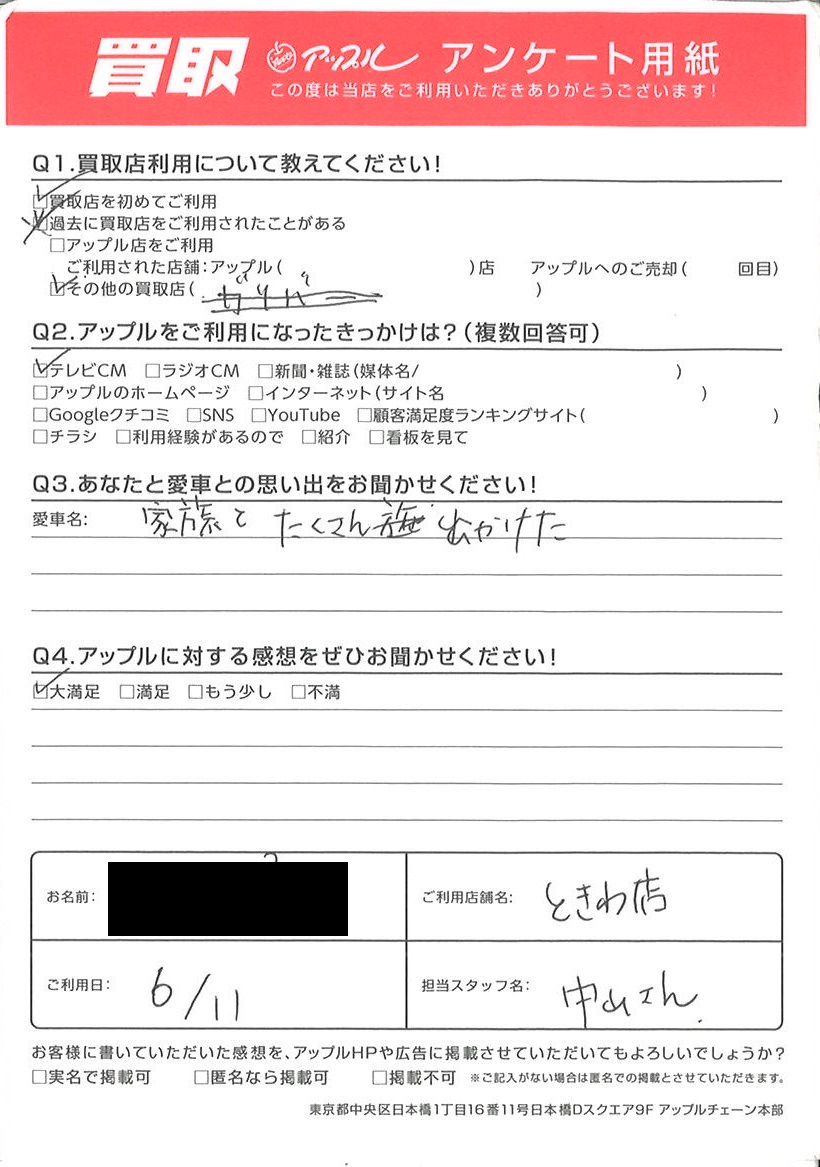 買取 アップル アンケート用紙
この度は当店をご利用いただきありがとうございます!
Q1.買取店利用について教えてください!
☑買取店を初めてご利用
☑過去に買取店をご利用されたことがある
□アップル店をご利用
ご利用された店舗:アップル( )店 アップルへのご売却( 回目)
☑その他の買取店( )
Q2.アップルをご利用になったきっかけは?(複数回答可)
☑テレビCM □ラジオCM □新聞・雑誌(媒体名/ )
□アップルのホームページ □インターネット(サイト名 )
□Googleクチコミ □SNS □YouTube □顧客満足度ランキングサイト( )
□チラシ □利用経験があるので □紹介 □看板を見て
Q3.あなたと愛車との思い出をお聞かせください!
愛車名: 家族と たくさん 出かけた
Q4.アップルに対する感想をぜひお聞かせください!
☑大満足 □満足 □もう少し □不満
お名前:
ご利用店舗名: ときわ店
ご利用日: 6/11
担当スタッフ名: 中山さん
お客様に書いていただいた感想を、アップルHPや広告に掲載させていただいてもよろしいでしょうか?
□実名で掲載可 □匿名なら掲載可 □掲載不可 ※ご記入がない場合は匿名での掲載とさせていただきます。
東京都中央区日本橋1丁目16番11号日本橋Dスクエア9F アップルチェーン本部